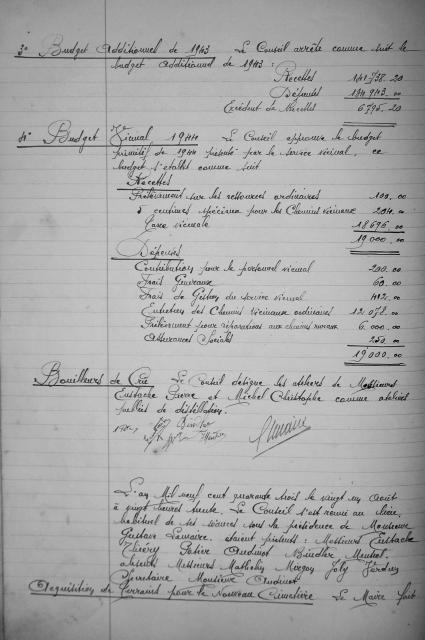 3° Budget Additionnel de 1943 Le Conseil arrête comme suit le
budget additionnel de 1943 :
Recettes 141.738.20
Dépenses 134.943.00
Excédent de Recettes 6795.20
4° Budget Vicinal 1944 Le Conseil approuve le budget
primitif de 1944 présenté par le service vicinal, ce
budget s'établit comme suit
Recettes
Prélèvement sur les ressources ordinaires 100.00
5 centimes spéciaux pour les Chemins vicinaux 204.00
Taxe vicinale 18696.00
19000.00
Dépenses
Contribution pour le personnel vicinal 200.00
Frais Généraux 60.00
Frais de Gestion du service vicinal 412.00
Entretien des Chemins Vicinaux ordinaires 12.078.00
Prélèvement pour réparations aux chemins ruraux 6.000.00
Assurances Sociales 250.00
19000.00
Bouilleurs de Cru Le Conseil désigne les ateliers de Messieurs
Eustache Pierre et Michel Christophe comme ateliers
publics de distillation.
L'an Mil neuf cent quarante trois le vingt un Août
à vingt heures trente. Le Conseil s'est réuni au lieu
habituel de ses séances sous la présidence de Monsieur
Gustave Lemaire. étaient présents : Messieurs Eustache
Thiéry Oudinot Bindler
absents Messieurs Mathelin Joly
Secrétaire Monsieur Oudinot
Acquisition de Terrains pour le Nouveau Cimetière Le Maire fait